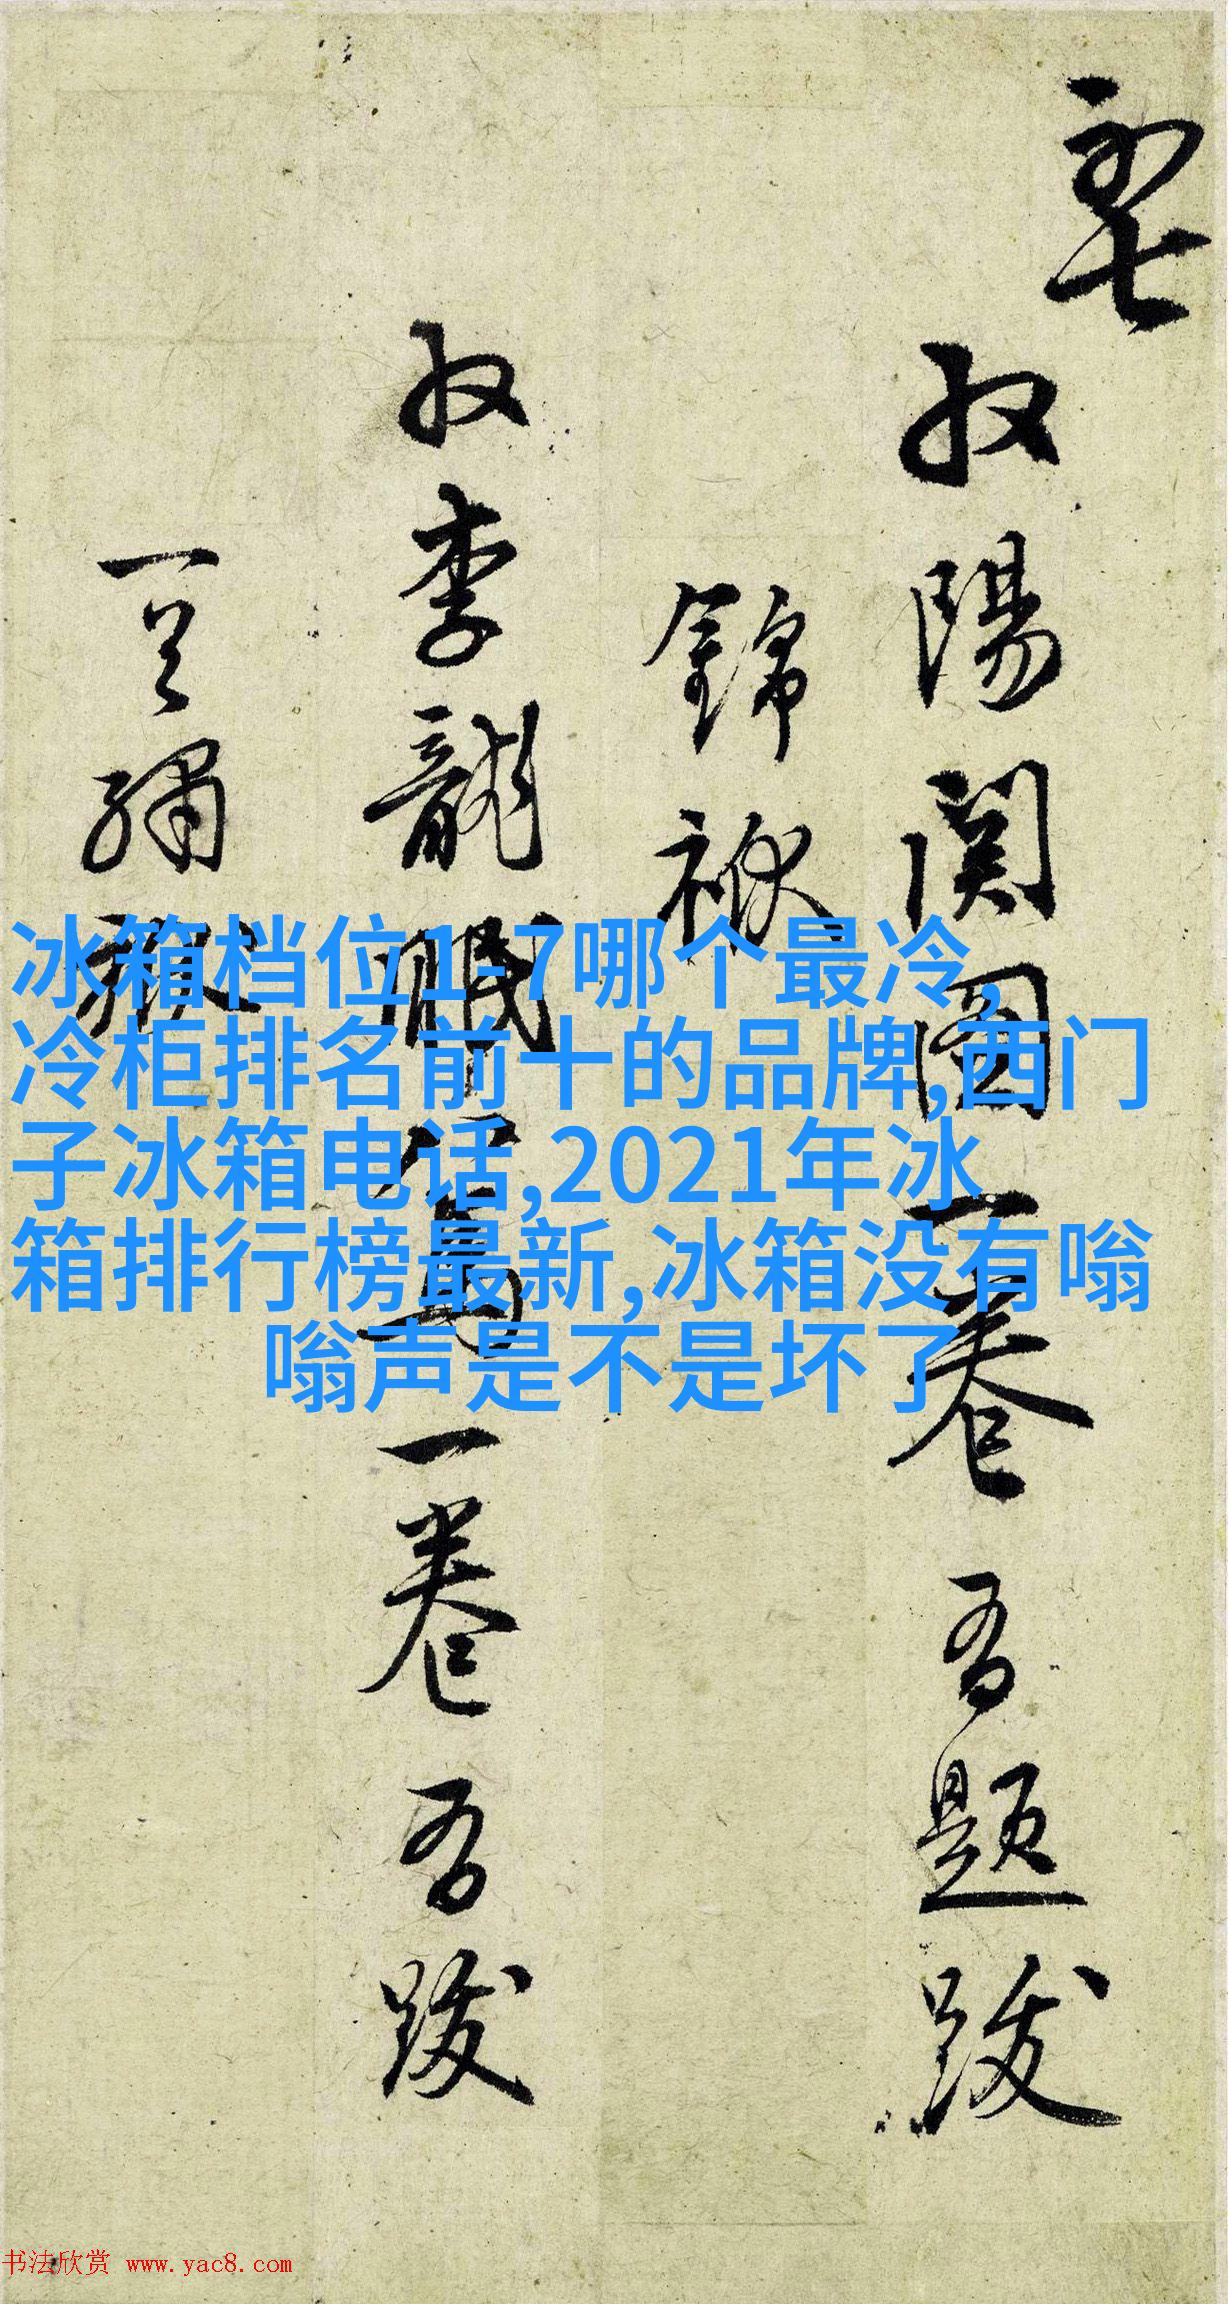 收陽関圖一卷吾題跋
錦
收李龍眠一卷吾跋
一
冰箱档位1-7哪个最冷,
冷柜排名前十的品牌,西门
子冰箱电话,2021年冰
箱排行榜最新,冰箱没有嗡
嗡声是不是坏了
书法欣赏 www.yac8.com